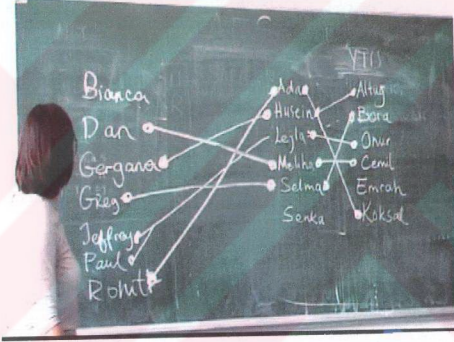 Bianca
Dan
Gergana
Greg
Jeffrey
Paul
Rohit
Ada
Husein
Lejla
Meliha
Selma
Senka
Altug
Bora
Onur
Cemil
Emrah
Koksal